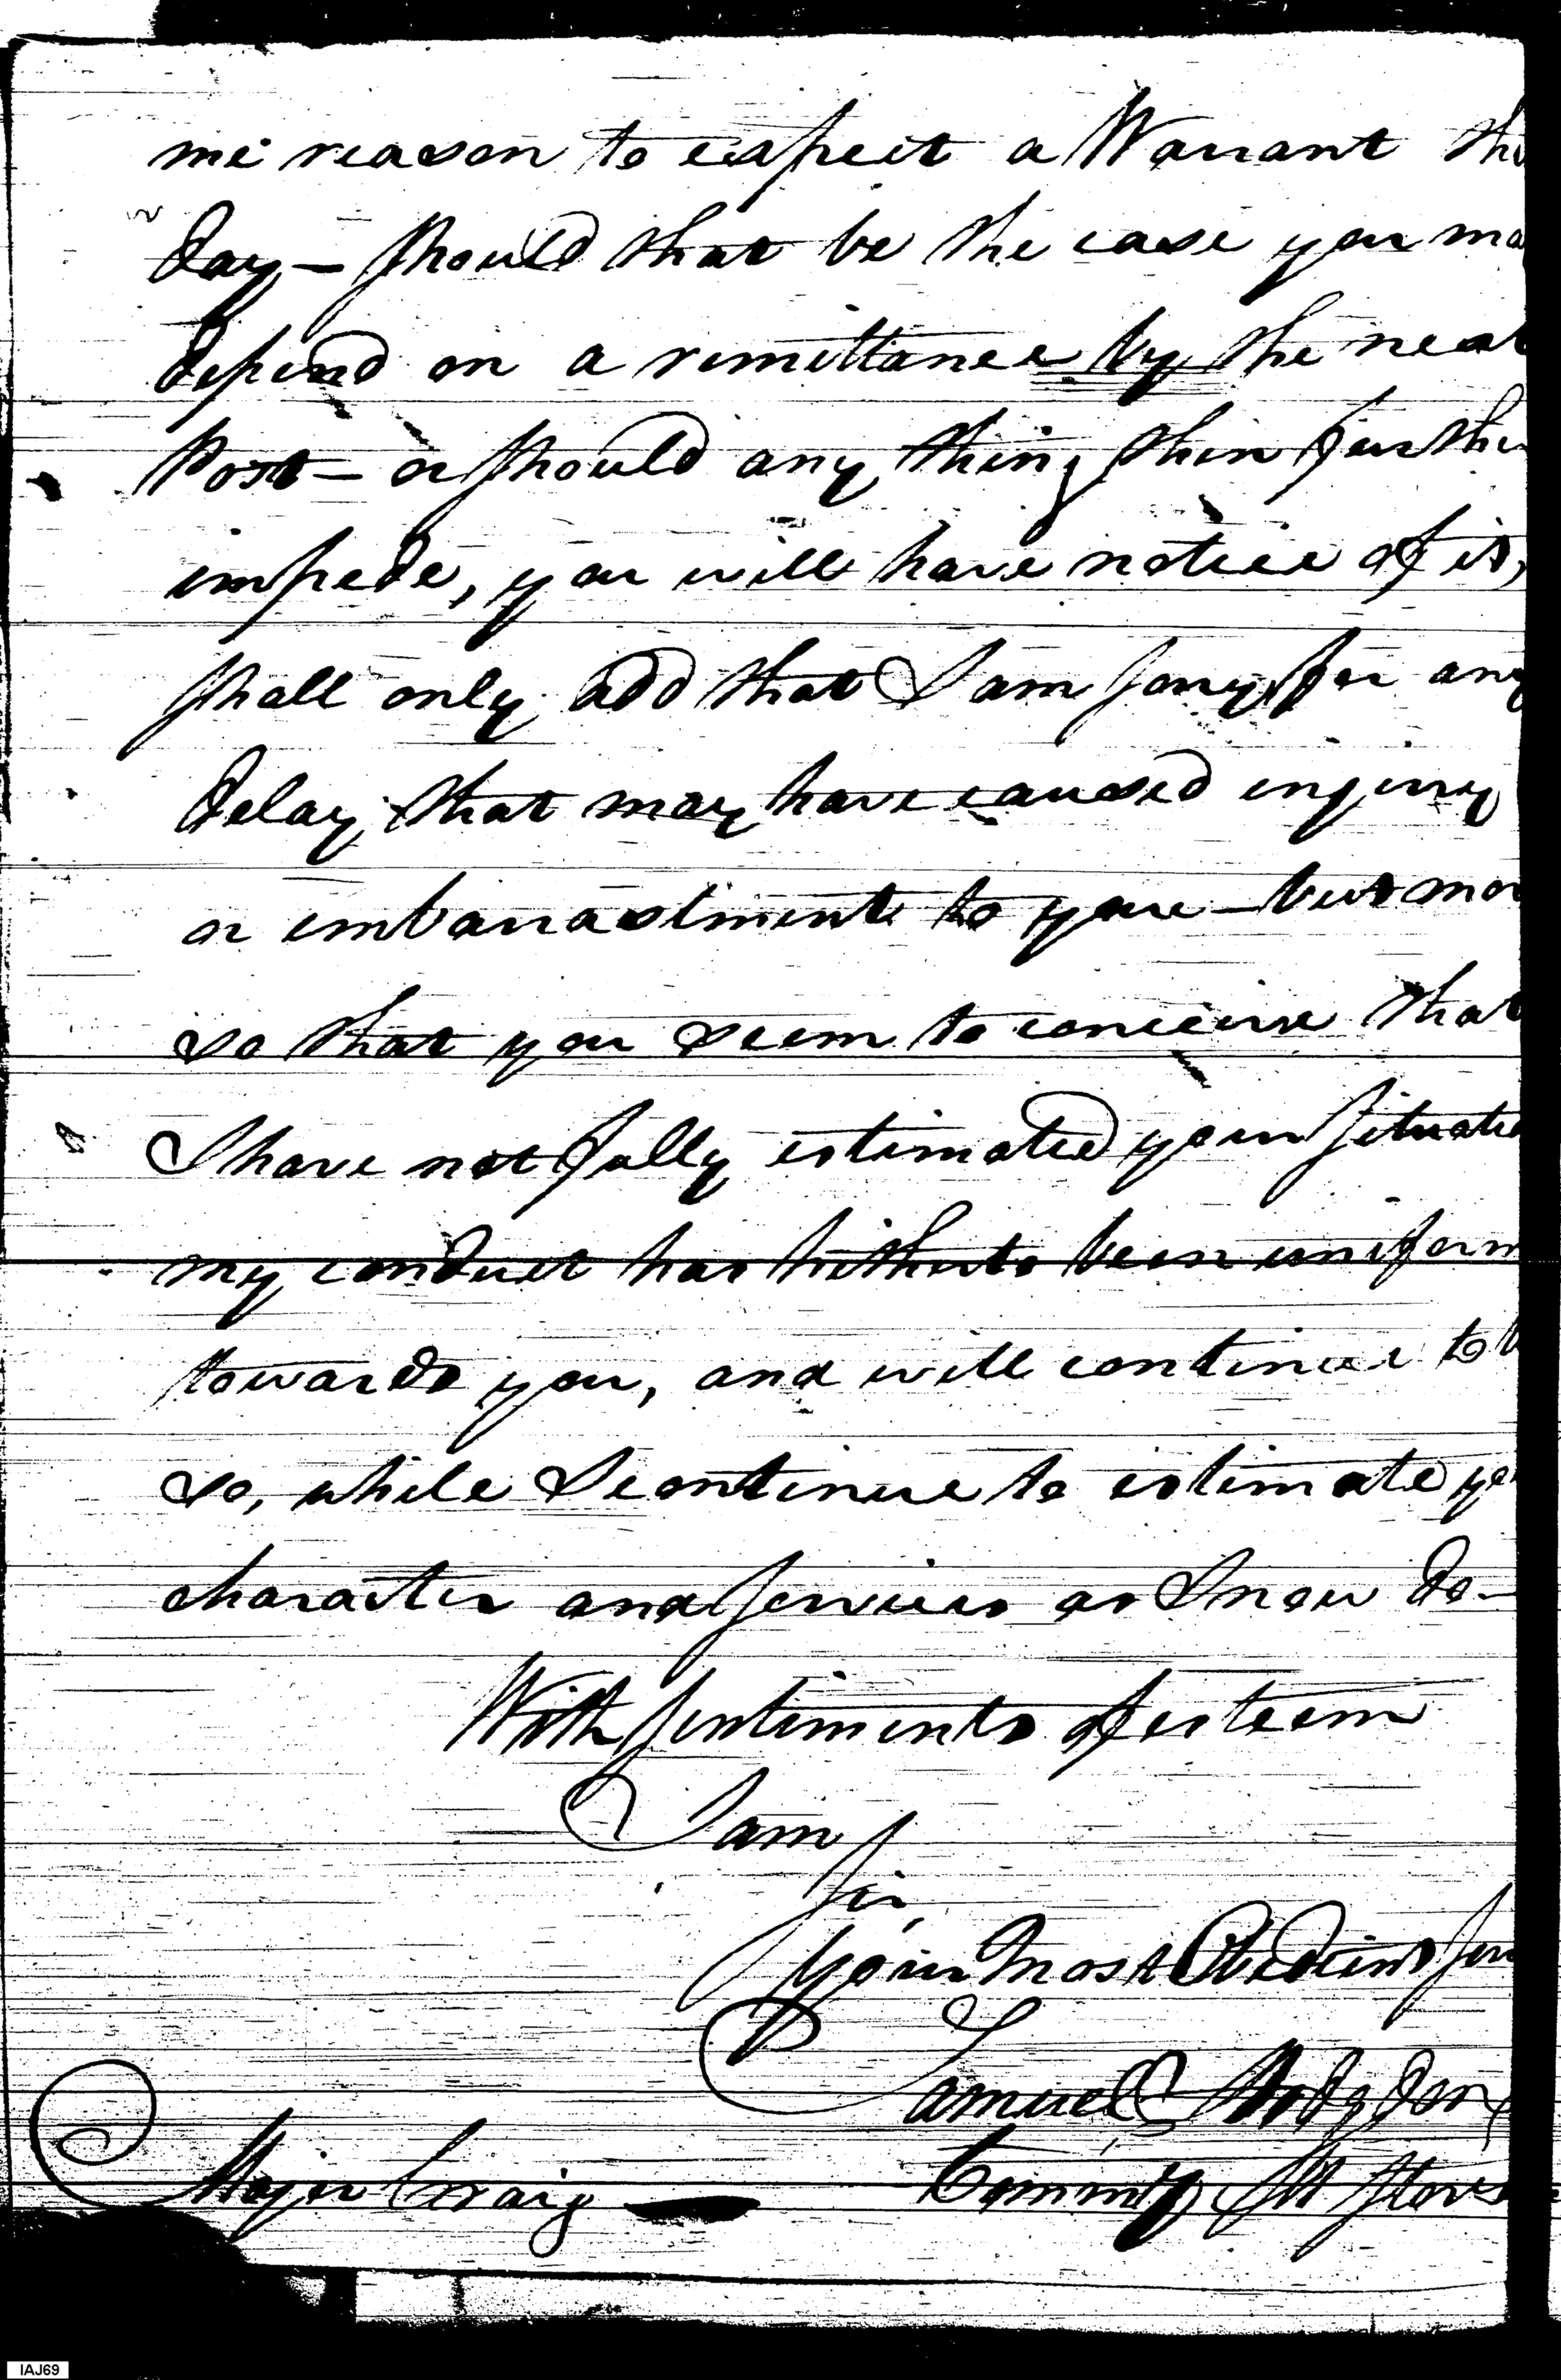 me reason to expect a Warrant this
day — should that be the case you ma
depend on a remittance by the next
Post — or should any thing then further
impede, you will have notice of it,
shall only add that I am sorry for any
delay that may have caused injury
or embarrastments to you — but mor
so that you seem to conceive that
I have not fully estimated your situatio
my conduct has hitherto been uniform
towards you, and will continue to b
so, while I continue to estimate yo
character and services as I now do —
With sentiments of esteem
I am
Sir
Your Most Obedient Ser
Samuel Hodgdon
Major Craig — Commisy Mil Stores
IAJ69